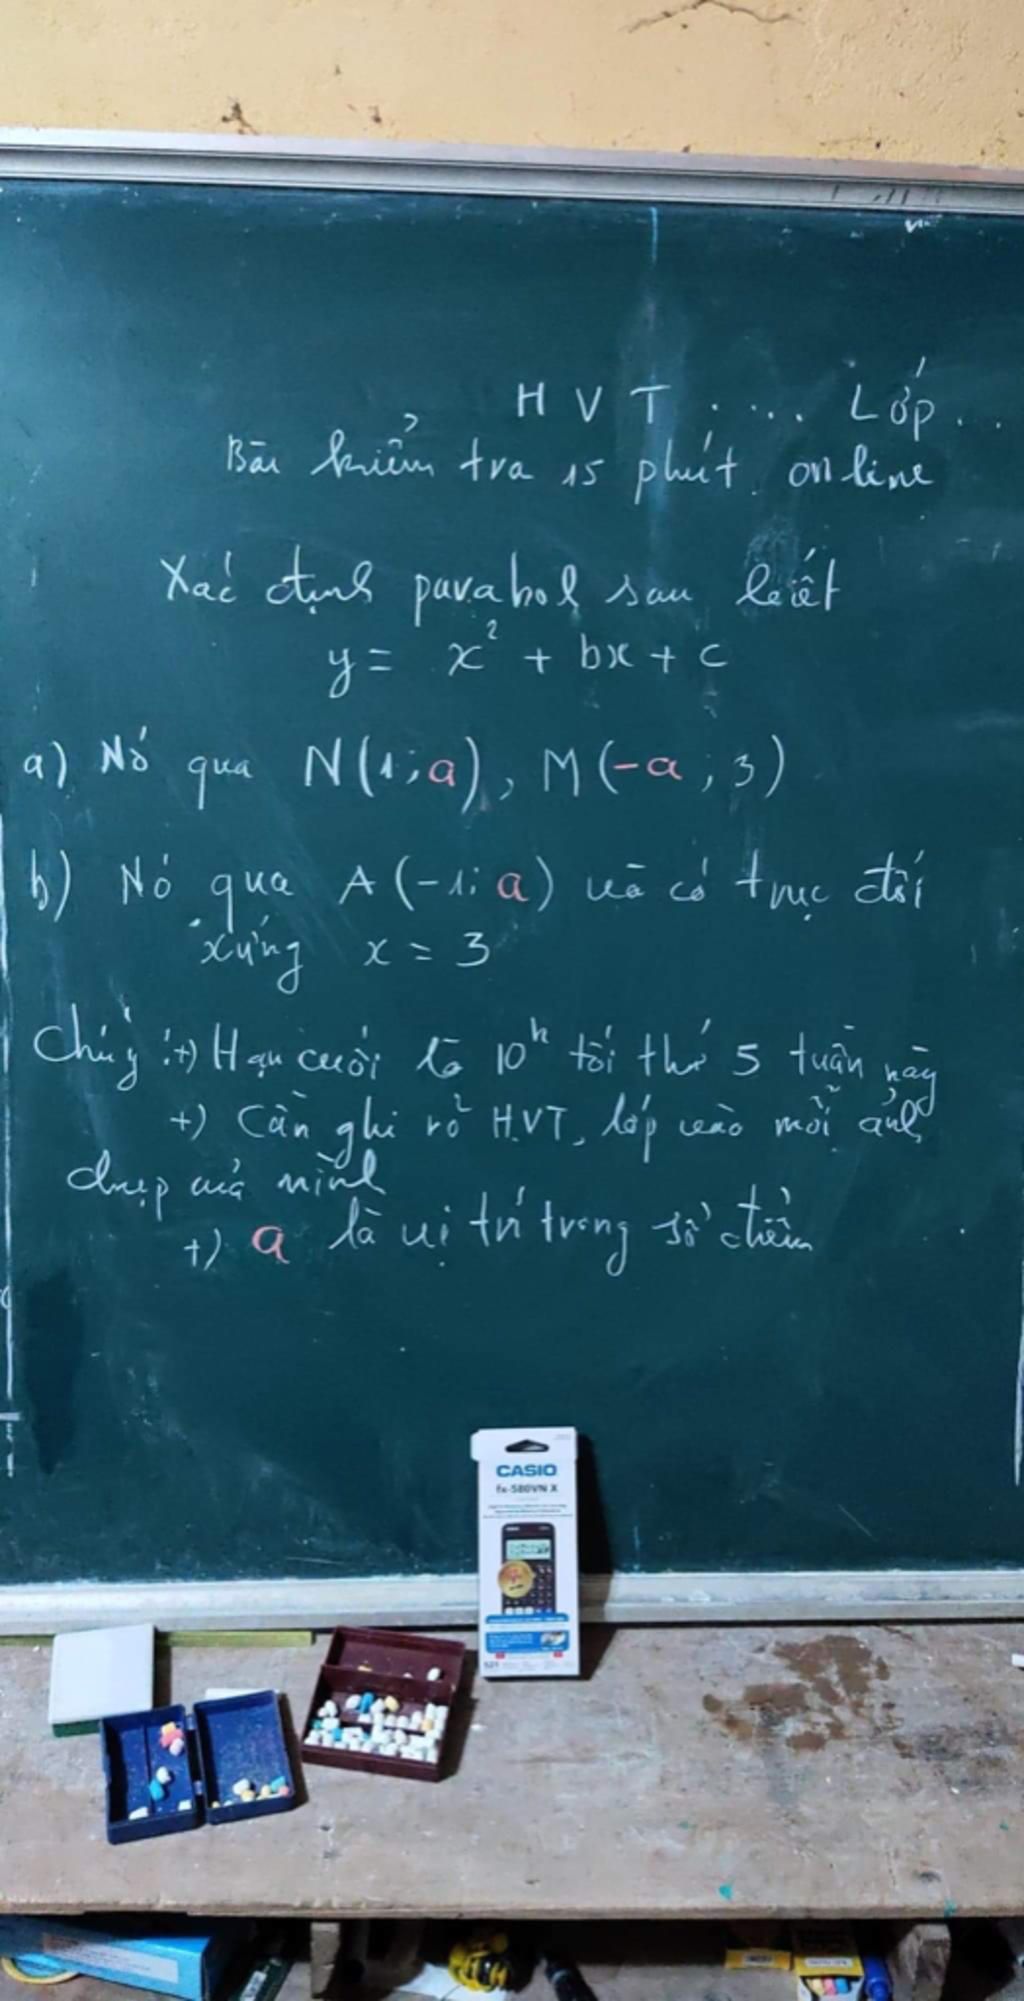 HVT .... Lớp ...
Bài kiểm tra 15 phút online
Xác định parabol sau biết
y = x² + bx + c
a) Nó qua N(1; a), M(-a; 3)
b) Nó qua A(-1; a) và có trục đối
xứng x = 3
Chú ý: +) Hạn cuối là 10h tối thứ 5 tuần này
+) Cần ghi rõ HVT, lớp vào mỗi ảnh
chụp của mình
+) a là vị trí trong sổ điểm
CASIO
fx-580VN X